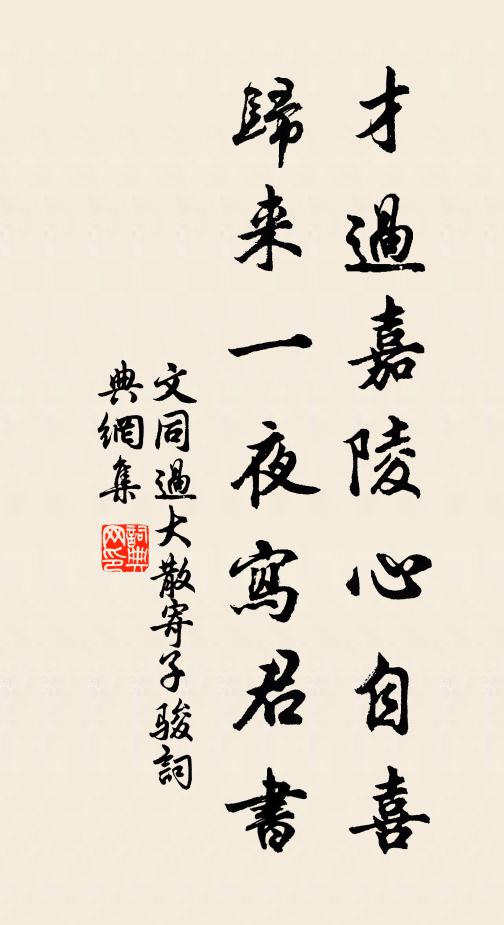 才過嘉陵心自喜
歸来一夜寫君書
文同過大散寄子駿詞
典網集
詞典網印